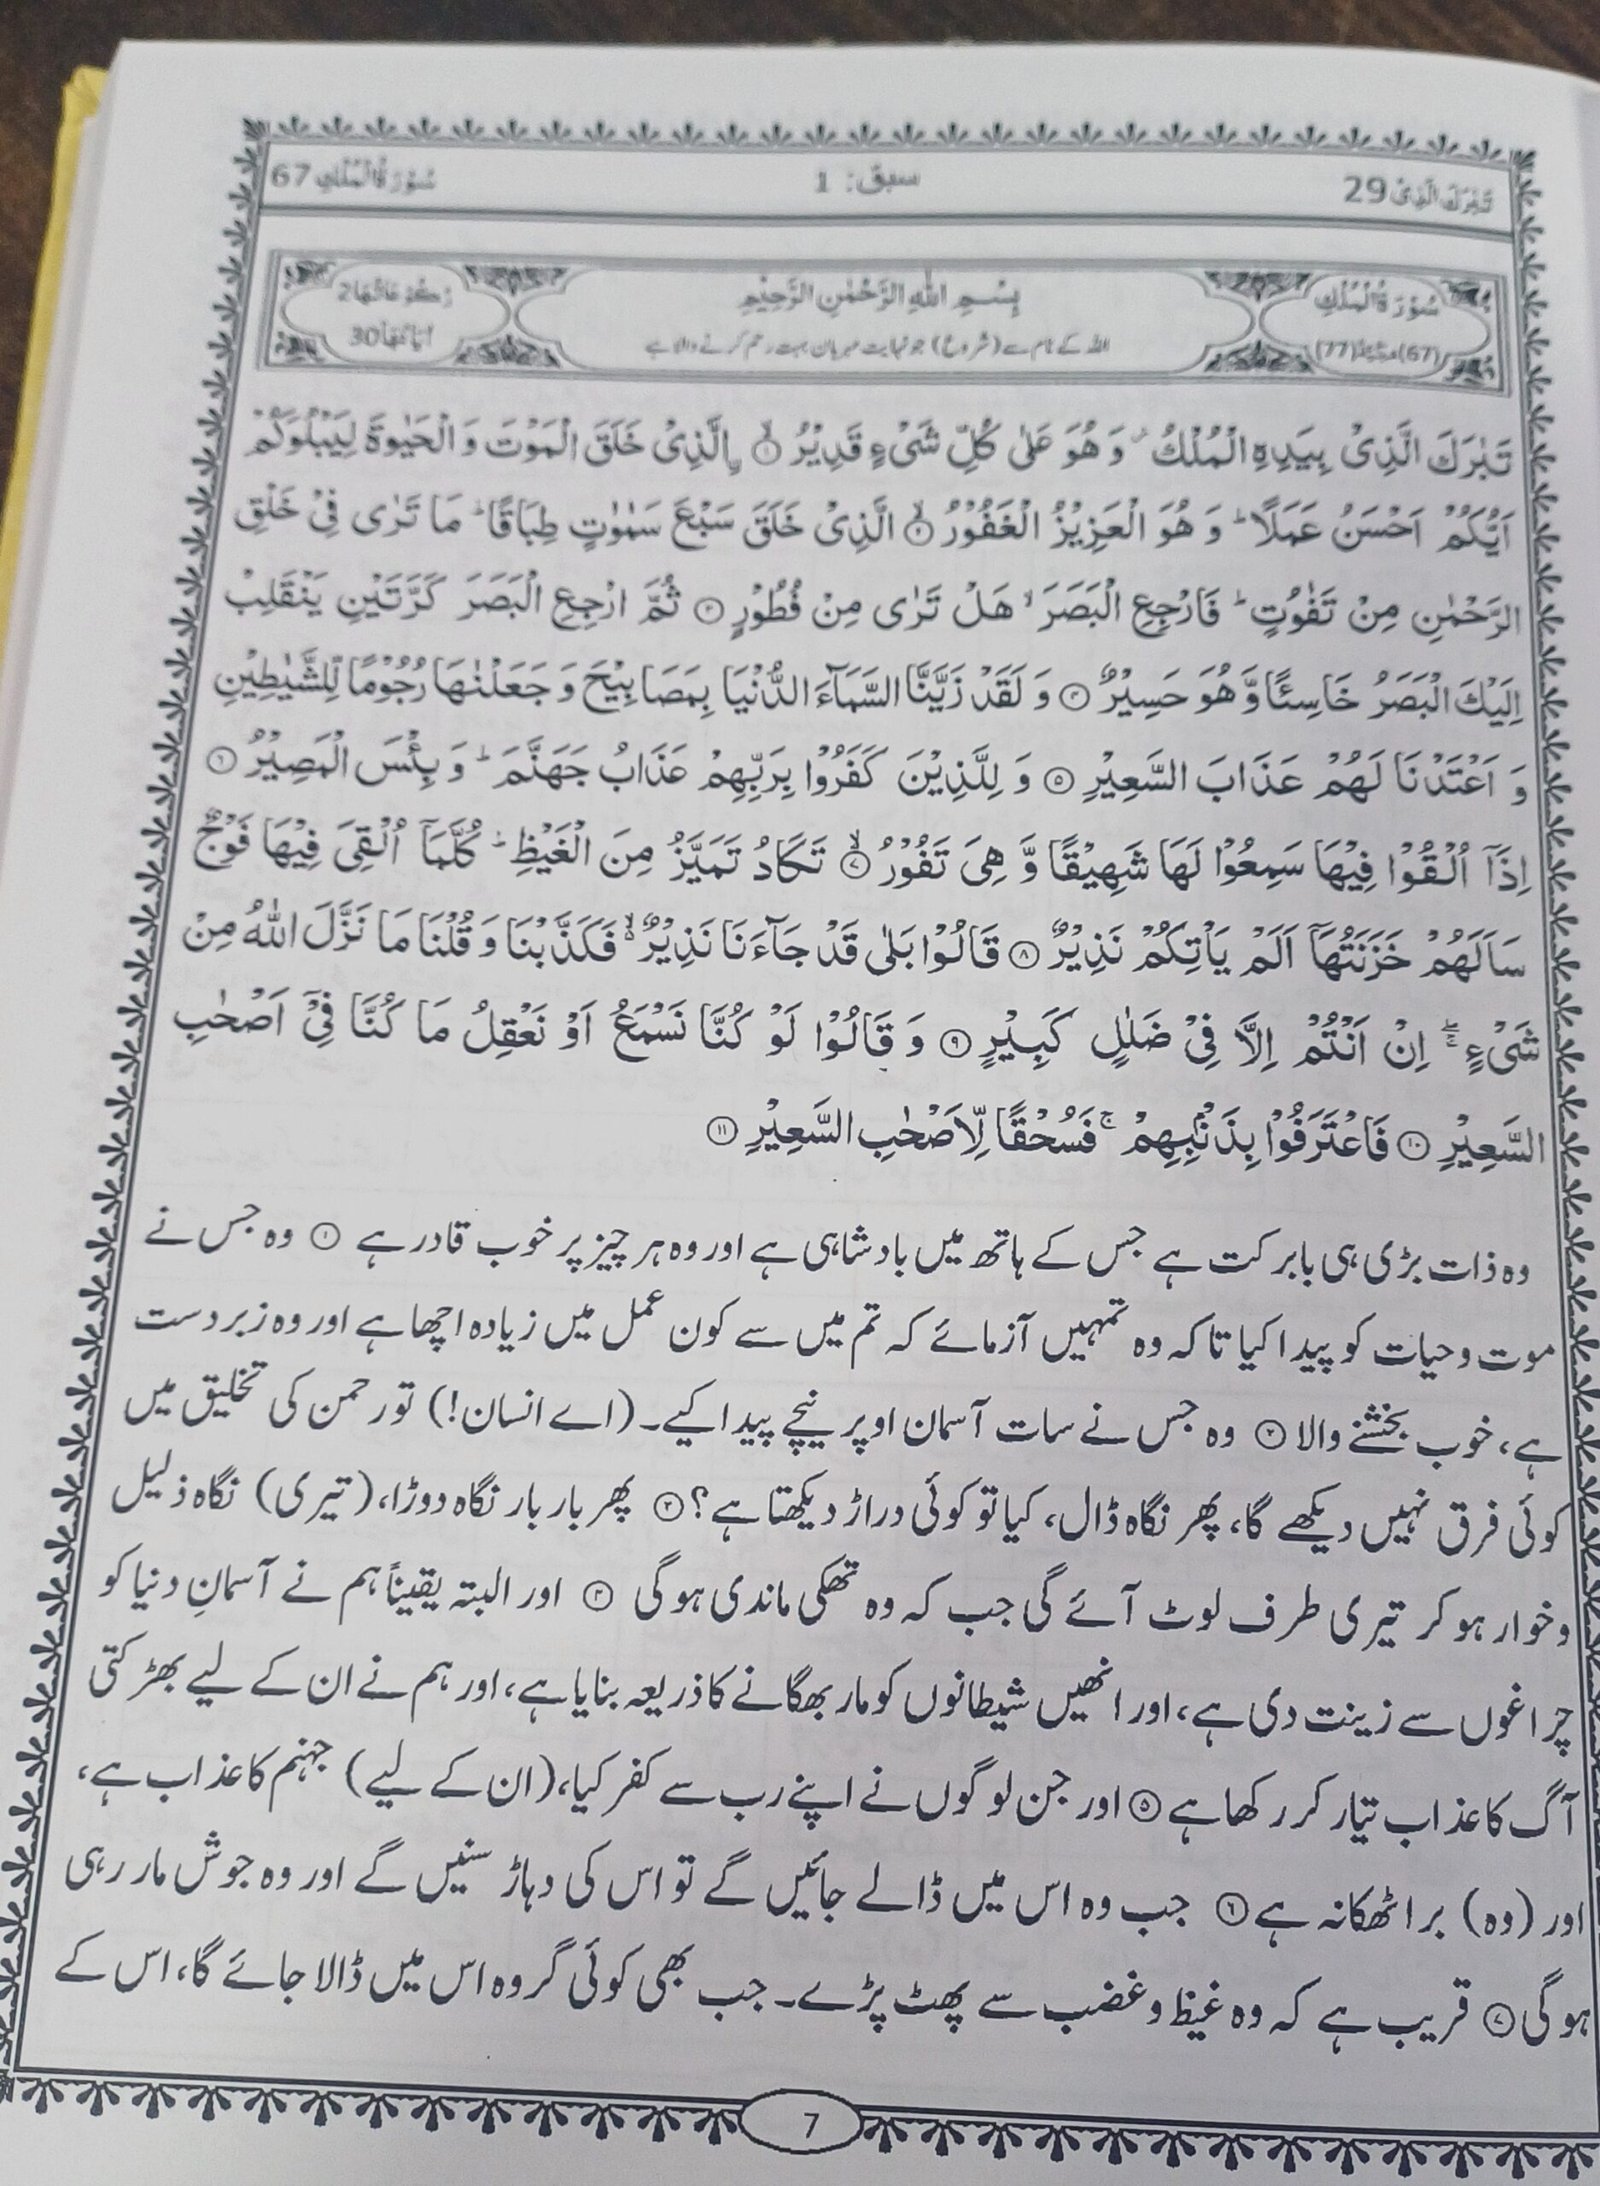 تَبٰرَكَ الَّذِیْ 29
سبق: 1
سُوْرَةُ الْمُلْكِ 67
سُوْرَةُ الْمُلْكِ
بِسْمِ اللّٰهِ الرَّحْمٰنِ الرَّحِیْمِ
رُكُوْعَاتُهَا 2
(67) مَكِّیَّةٌ (77)
اللہ کے نام سے (شروع) جو نہایت مہربان بہت رحم کرنے والا ہے
اٰیَاتُهَا 30
تَبٰرَكَ الَّذِیْ بِیَدِهِ الْمُلْكُ ؗ وَ هُوَ عَلٰی كُلِّ شَیْءٍ قَدِیْرُ ۙ﴿۱﴾ ِ۟الَّذِیْ خَلَقَ الْمَوْتَ وَ الْحَیٰوةَ لِیَبْلُوَكُمْ
اَیُّكُمْ اَحْسَنُ عَمَلًا ؕ وَ هُوَ الْعَزِیْزُ الْغَفُوْرُ ۙ﴿۲﴾ الَّذِیْ خَلَقَ سَبْعَ سَمٰوٰتٍ طِبَاقًا ؕ مَا تَرٰی فِیْ خَلْقِ
الرَّحْمٰنِ مِنْ تَفٰوُتٍ ؕ فَارْجِعِ الْبَصَرَ ۙ هَلْ تَرٰی مِنْ فُطُوْرٍ ﴿۳﴾ ثُمَّ ارْجِعِ الْبَصَرَ كَرَّتَیْنِ یَنْقَلِبْ
اِلَیْكَ الْبَصَرُ خَاسِئًا وَّ هُوَ حَسِیْرٌ ﴿۴﴾ وَ لَقَدْ زَیَّنَّا السَّمَآءَ الدُّنْیَا بِمَصَابِیْحَ وَ جَعَلْنٰهَا رُجُوْمًا لِّلشَّیٰطِیْنِ
وَ اَعْتَدْنَا لَهُمْ عَذَابَ السَّعِیْرِ ﴿۵﴾ وَ لِلَّذِیْنَ كَفَرُوْا بِرَبِّهِمْ عَذَابُ جَهَنَّمَ ؕ وَ بِئْسَ الْمَصِیْرُ ﴿۶﴾
اِذَاۤ اُلْقُوْا فِیْهَا سَمِعُوْا لَهَا شَهِیْقًا وَّ هِیَ تَفُوْرُ ۙ﴿۷﴾ تَكَادُ تَمَیَّزُ مِنَ الْغَیْظِ ؕ كُلَّمَاۤ اُلْقِیَ فِیْهَا فَوْجٌ
سَاَلَهُمْ خَزَنَتُهَاۤ اَلَمْ یَاْتِكُمْ نَذِیْرٌ ﴿۸﴾ قَالُوْا بَلٰی قَدْ جَآءَنَا نَذِیْرٌ ۙ۬ فَكَذَّبْنَا وَ قُلْنَا مَا نَزَّلَ اللّٰهُ مِنْ
شَیْءٍ ۖۚ اِنْ اَنْتُمْ اِلَّا فِیْ ضَلٰلٍ كَبِیْرٍ ﴿۹﴾ وَ قَالُوْا لَوْ كُنَّا نَسْمَعُ اَوْ نَعْقِلُ مَا كُنَّا فِیْۤ اَصْحٰبِ
السَّعِیْرِ ﴿۱۰﴾ فَاعْتَرَفُوْا بِذَنْۢبِهِمْ ۚ فَسُحْقًا لِّاَصْحٰبِ السَّعِیْرِ ﴿۱۱﴾
وہ ذات بڑی ہی بابرکت ہے جس کے ہاتھ میں بادشاہی ہے اور وہ ہر چیز پر خوب قادر ہے ﴿۱﴾ وہ جس نے
موت و حیات کو پیدا کیا تاکہ وہ تمہیں آزمائے کہ تم میں سے کون عمل میں زیادہ اچھا ہے اور وہ زبردست
ہے، خوب بخشنے والا ﴿۲﴾ وہ جس نے سات آسمان اوپر نیچے پیدا کیے۔ (اے انسان!) تو رحمن کی تخلیق میں
کوئی فرق نہیں دیکھے گا، پھر نگاہ ڈال، کیا تو کوئی دراڑ دیکھتا ہے؟ ﴿۳﴾ پھر بار بار نگاہ دوڑا، (تیری) نگاہ ذلیل
و خوار ہو کر تیری طرف لوٹ آئے گی جب کہ وہ تھکی ماندی ہوگی ﴿۴﴾ اور البتہ یقیناً ہم نے آسمانِ دنیا کو
چراغوں سے زینت دی ہے، اور انھیں شیطانوں کو مار بھگانے کا ذریعہ بنایا ہے، اور ہم نے ان کے لیے بھڑکتی
آگ کا عذاب تیار کر رکھا ہے ﴿۵﴾ اور جن لوگوں نے اپنے رب سے کفر کیا، (ان کے لیے) جہنم کا عذاب ہے،
اور (وہ) برا ٹھکانہ ہے ﴿۶﴾ جب وہ اس میں ڈالے جائیں گے تو اس کی دہاڑ سنیں گے اور وہ جوش مار رہی
ہوگی ﴿۷﴾ قریب ہے کہ وہ غیظ و غضب سے پھٹ پڑے۔ جب بھی کوئی گروہ اس میں ڈالا جائے گا، اس کے
7